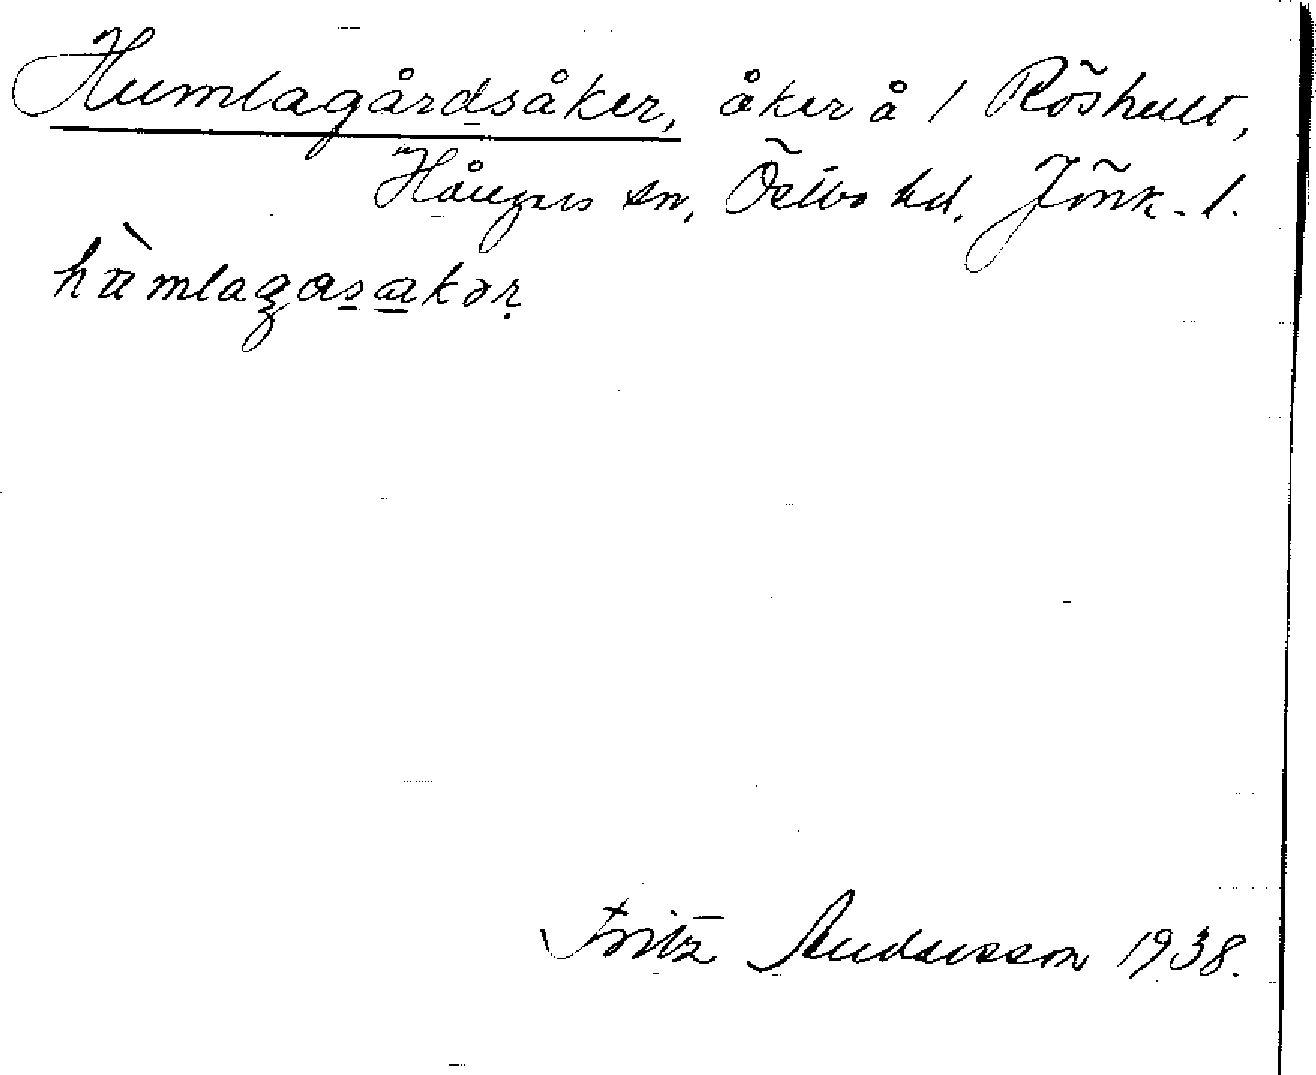 Humlagårdsåker, åker å 1 Röshult,
Hånger sn, Östbo hd. Jönk. l.
hùmlagasakər
Fritz Andersson 1938.